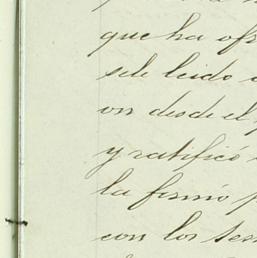 que ha ofre
sele leido
on desde el
y ratificó
la firmó p
con los Sen